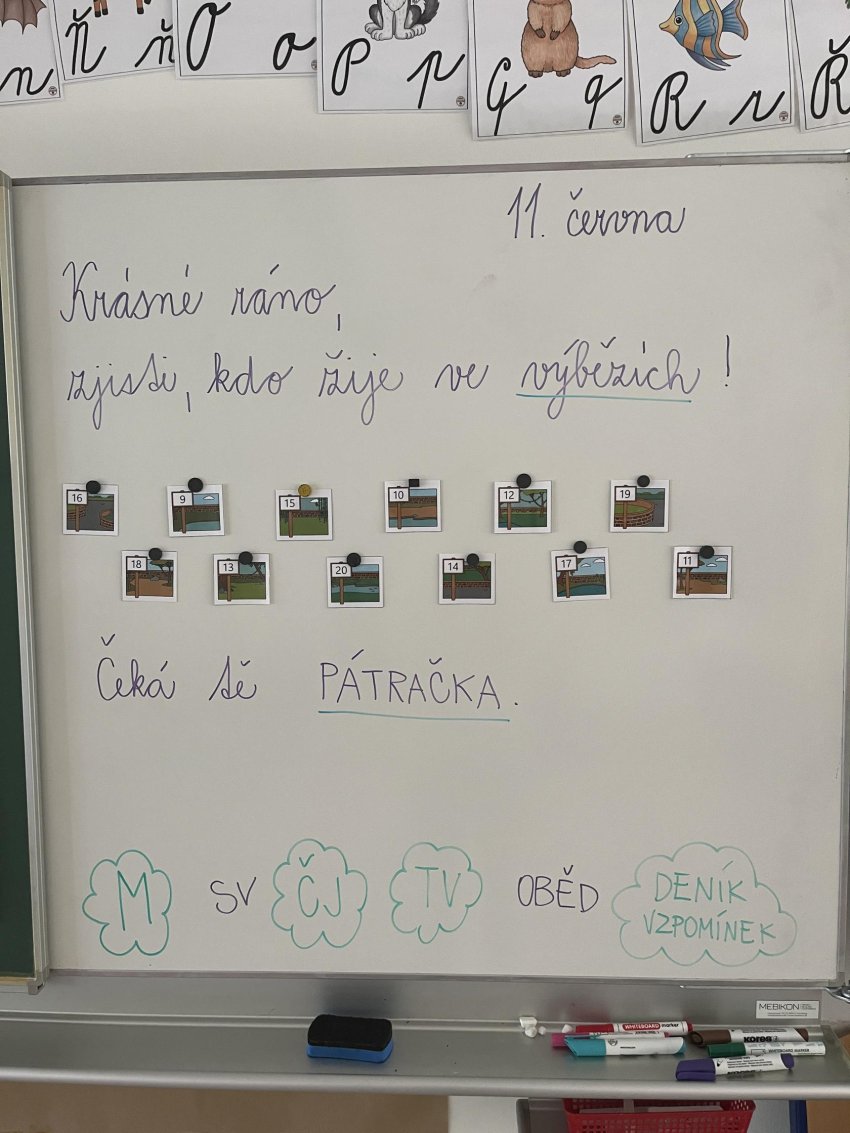 n Ň ň O o P p Q q R r Ř
11. června
Krásné ráno,
zjisti, kdo žije ve výbězích!
16 9 15 10 12 19
18 13 20 14 17 11
Čeká tě PÁTRAČKA.
M SV ČJ TV OBĚD DENÍK
VZPOMÍNEK
MEBIKON
WHITEBOARD marker
KORES
WHITEBOARD MARKER